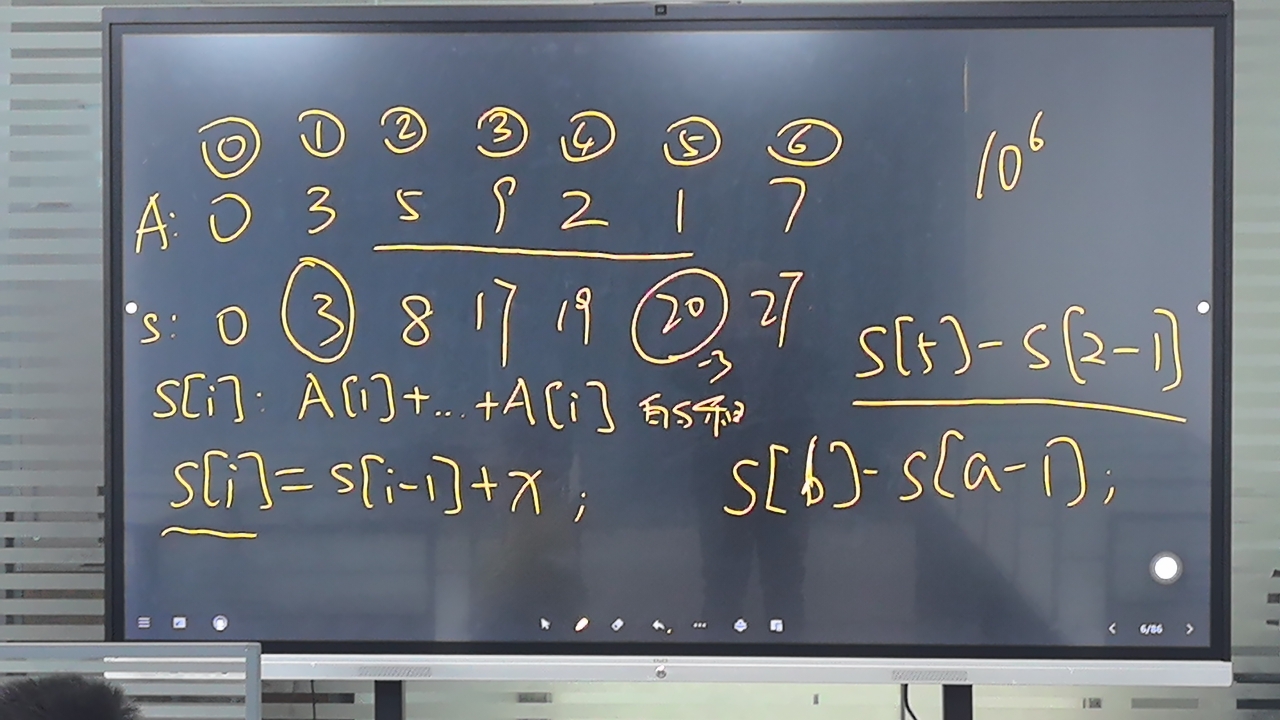 ⓪ ① ② ③ ④ ⑤ ⑥
10⁶
A: 0 3 5 9 2 1 7
S: 0 3 8 17 19 20 27
-3
S[5]-S[2-1]
S[i]: A[1]+...+A[i] 前缀和
S[i]=S[i-1]+x;
S[b]-S[a-1];
6/86